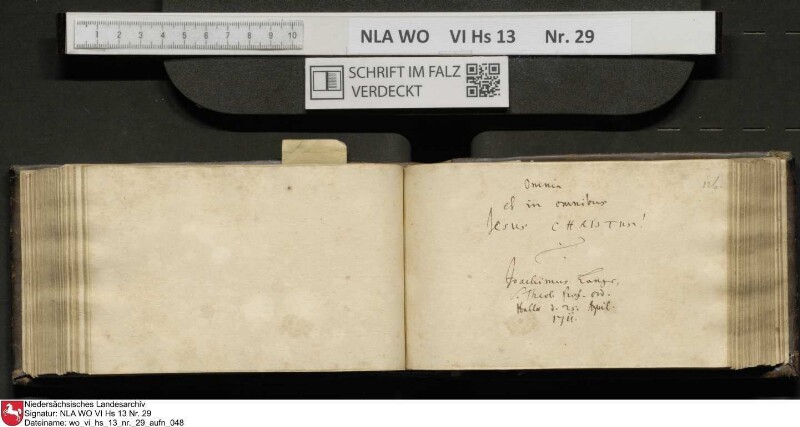 1 2 3 4 5 6 7 8 9 10
NLA WO VI Hs 13 Nr. 29
SCHRIFT IM FALZ
VERDECKT
Omnia
et in omnibus
Jesus CHRISTus!
Joachimus Lange,
S. Theol. Prof. ord.
Halle d. April.
Niedersächsisches Landesarchiv
Signatur: NLA WO VI Hs 13 Nr. 29
Dateiname: wo_vi_hs_13_nr._29_aufn_048